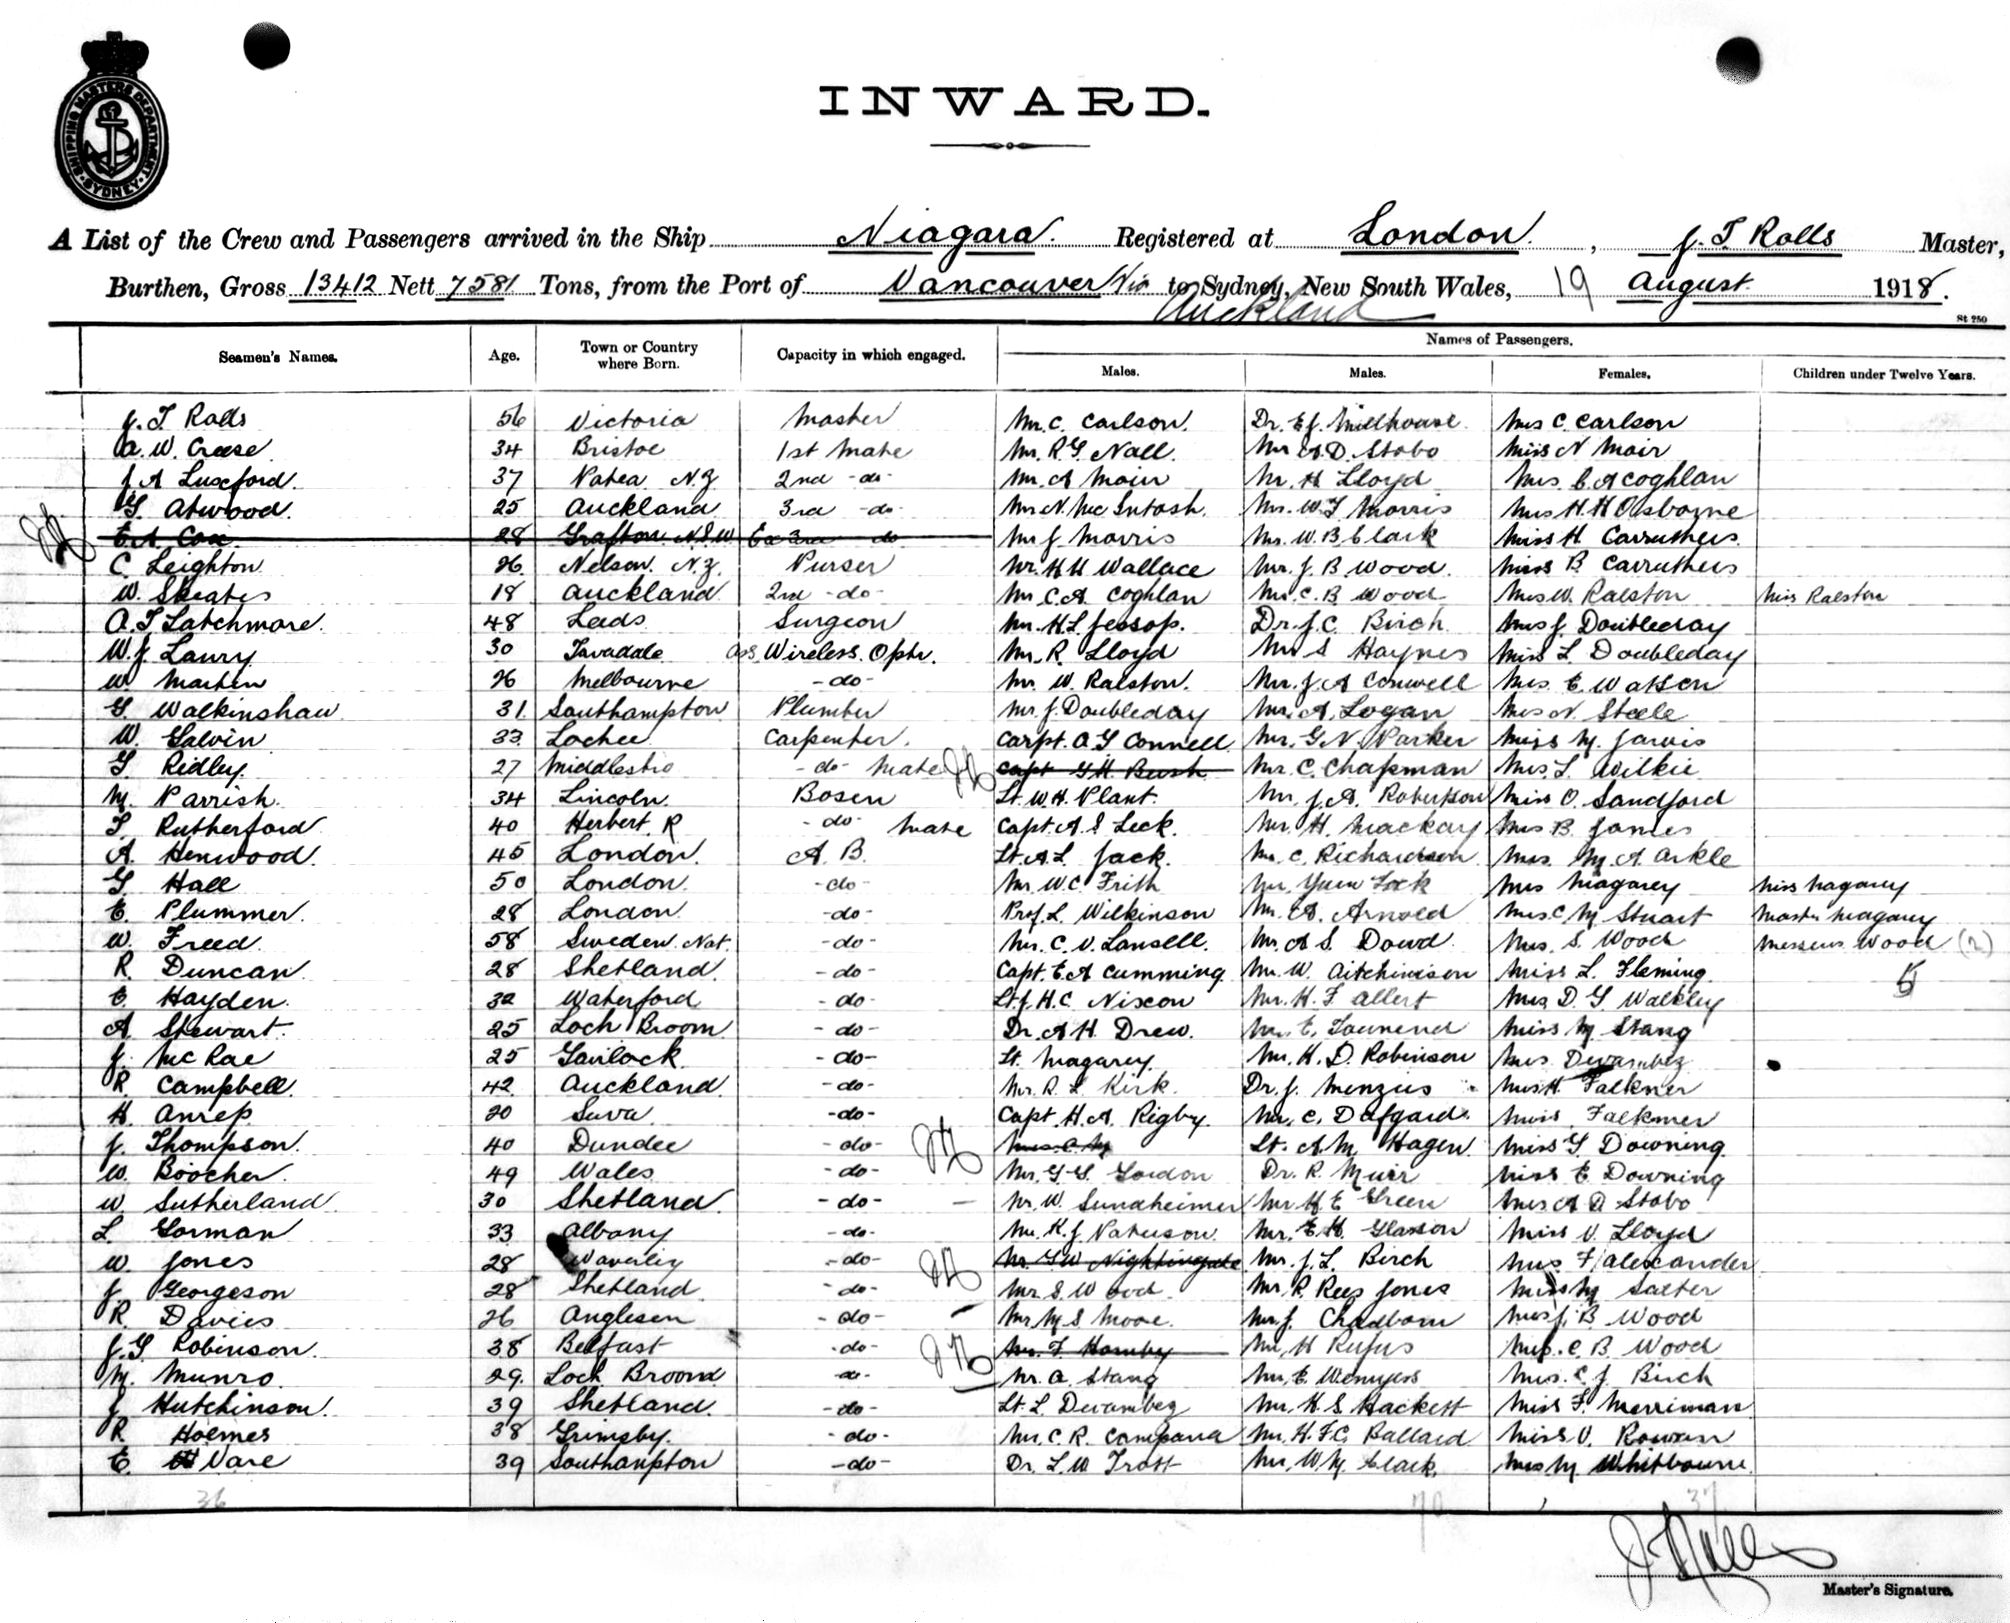 SHIPPING MASTERS DEPARTMENT SYDNEY
INWARD.
A List of the Crew and Passengers arrived in the Ship Niagara. Registered at London, J. T Rolls Master,
Burthen, Gross 13412 Nett 7581 Tons, from the Port of Vancouver Via to Sydney, New South Wales, 19 August 1918.
Auckland
St 250
Seamen's Names. Age. Town or Country where Born. Capacity in which engaged. Names of Passengers.
Males. Males. Females. Children under Twelve Years.
J. T Rolls 56 Victoria Master Mr. C. Carlson. Dr. E J. Millhouse. Mrs C. Carlson
A. W. Crease 34 Bristol 1st Mate Mr. R. G. Nall. Mr A. D. Stobo Miss N Moir
J A Luxford. 37 Patea N.Z 2nd -do- Mr. A Moir Mr. H Lloyd Mrs. C. A Coghlan
G. Atwood. 25 Auckland 3rd -do- Mr N. McIntosh. Mr. W. J Morris Mrs H. H Osborne
E A Cox 28 Grafton N.S.W Ex 3rd do Mr J. Morris Mr. W. B. Clark Miss H Carruthers.
C. Leighton 26 Nelson N.Z. Purser Mr. H H Wallace Mr. J. B. Wood. Miss B. Carruthers
W. Skeates 18 Auckland 2nd -do- Mr C. A. Coghlan Mr. C. B. Wood Mrs W. Ralston Miss Ralston
A. T Latchmore. 48 Leeds Surgeon Mr. H. L Jessop. Dr. J. C. Birch Mrs J. Doubleday
W. J. Laury 30 Taradale Ass. Wireless Optr. Mr. R. Lloyd Mr S Haynes Miss L. Doubleday
W. Martin 26 Melbourne -do- Mr. W. Ralston. Mr. J. A Conwell Mrs. E. Watson
G. Walkinshaw 31 Southampton Plumber Mr. J. Doubleday Mr. A. Logan Mrs N. Steele
W. Galvin 33 Lochee Carpenter. Capt. A G Connell Mr. G. N. Parker Miss M. Jarvis
G. Ridley. 27 Middlesbro -do- Mate Capt G H. Bush Mr. C. Chapman Mrs. L. Wilkie
M. Parrish. 34 Lincoln. Bosen Lt. W. H. Plant. Mr. J. A. Robertson Miss O. Sandford
T. Rutherford 40 Herbert. R -do- Mate Capt. A. S Leck. Mr. H. Mackay Mrs B. James
A. Henwood. 45 London. A. B. Lt. A. L. Jack. Mr. C. Richardson Mrs. M. A. Arkle
G. Hall 50 London. -do- Mr. W. C. Frith Mr. Yuen Mrs Magarey Miss Magarey
E. Plummer. 28 London. -do- Prof. L. Wilkinson Mr. A. Arnold Mrs. C. M. Stuart Master Magarey
W. Freed. 58 Sweden. Nat. -do- Mr. C. V. Lansell. Mr. A S. Dowd. Mrs. S. Wood Messrs Wood (2)
R. Duncan 28 Shetland. -do- Capt. E. A Cumming. Mr. W. Aitchinson Miss L. Fleming. 5
E. Hayden. 32 Waterford -do- Lt. J. H. C. Nixon Mr. H. F. Allert Mrs. D. G. Walkley
A. Stewart. 25 Loch Broom -do- Dr. A H. Drew. Mr. E. Townend Miss M. Stang
J. McRae 25 Gairlock -do- Lt. Magarey. Mr. H. D. Robinson Mrs. Devambez
R. Campbell. 42 Auckland. -do- Mr. R. L. Kirk. Dr. J. Menzies Mrs H. Falkner
H. Anrep. 20 Suva -do- Capt. H. A. Rigby. Mr. C. Dafgard. Miss Falkmer
J. Thompson. 40 Dundee -do- Lt. A. M. Hagen. Miss G. Downing.
W. Boocher. 49 Wales. -do- Mr. G. G. Gordon Dr. R. Muir Miss E Downing
W Sutherland 30 Shetland. -do- Mr. W. Sundheimer Mr H E Green Mrs. A D Stobo
L. Gorman 33 Albany -do- Mr. H. J Paterson. Mr. E. H. Glasson Miss V. Lloyd
W. Jones 28 Waverley -do- Mr. G W Nightingale Mr. J. L. Birch Mrs. F Alexander
J. Georgeson 28 Shetland. -do- Mr S. Wood. Mr. R. Rees Jones Miss M Salter
R. Davies 26 Anglesen -do- Mr M S Moore. Mr. J. Chadborn Mrs J. B Wood
J. G Robinson. 38 Belfast -do- Mr. T Hornby Mr. H Rufus Mrs. C. B. Wood
M. Munro. 29. Loch Broom do- Mr. A. Stang Mr. E. Wemyss Mrs. C. J. Birch
J Hutchinson. 39 Shetland. -do- Lt. L. Devambez Mr. H. S. Hackett Miss F. Merriman
R. Holmes 38 Grimsby. -do- Mr. C. R. Campana Mr. H. F. C. Ballard Miss V. Rowan
E. Vare 39 Southampton -do- Dr. L. W Trott Mr. W M. Clark. Mrs M Whitbourne.
36 70 37
J T Rolls
Master's Signature.